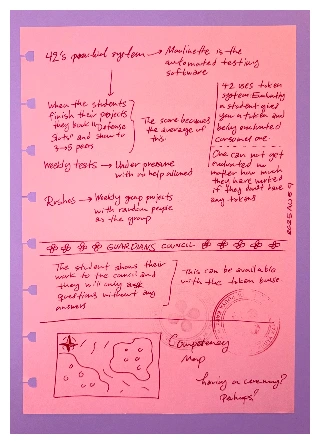 42's practical system → Moulinette is the
automated testing
software
When the students
finish their projects
they book "Defense
Slots" and show to
3-5 peers
The score becomes
the average of
this
42 uses token
system Evaluating
a student gives
you a token and
being evaluated
consumes one.
One can not get
evaluated no
matter how much
they have worked
if they don't have
any tokens
Weekly tests → Under pressure
with no help allowed
Rushes → Weekly group projects
with random people
as the group
GUARDIANS COUNCIL
The student shows their
work to the council and
they will only ask
questions without any
answers
This can be available
with the token base
Competency
Map
having a ceremony?
Perhaps?